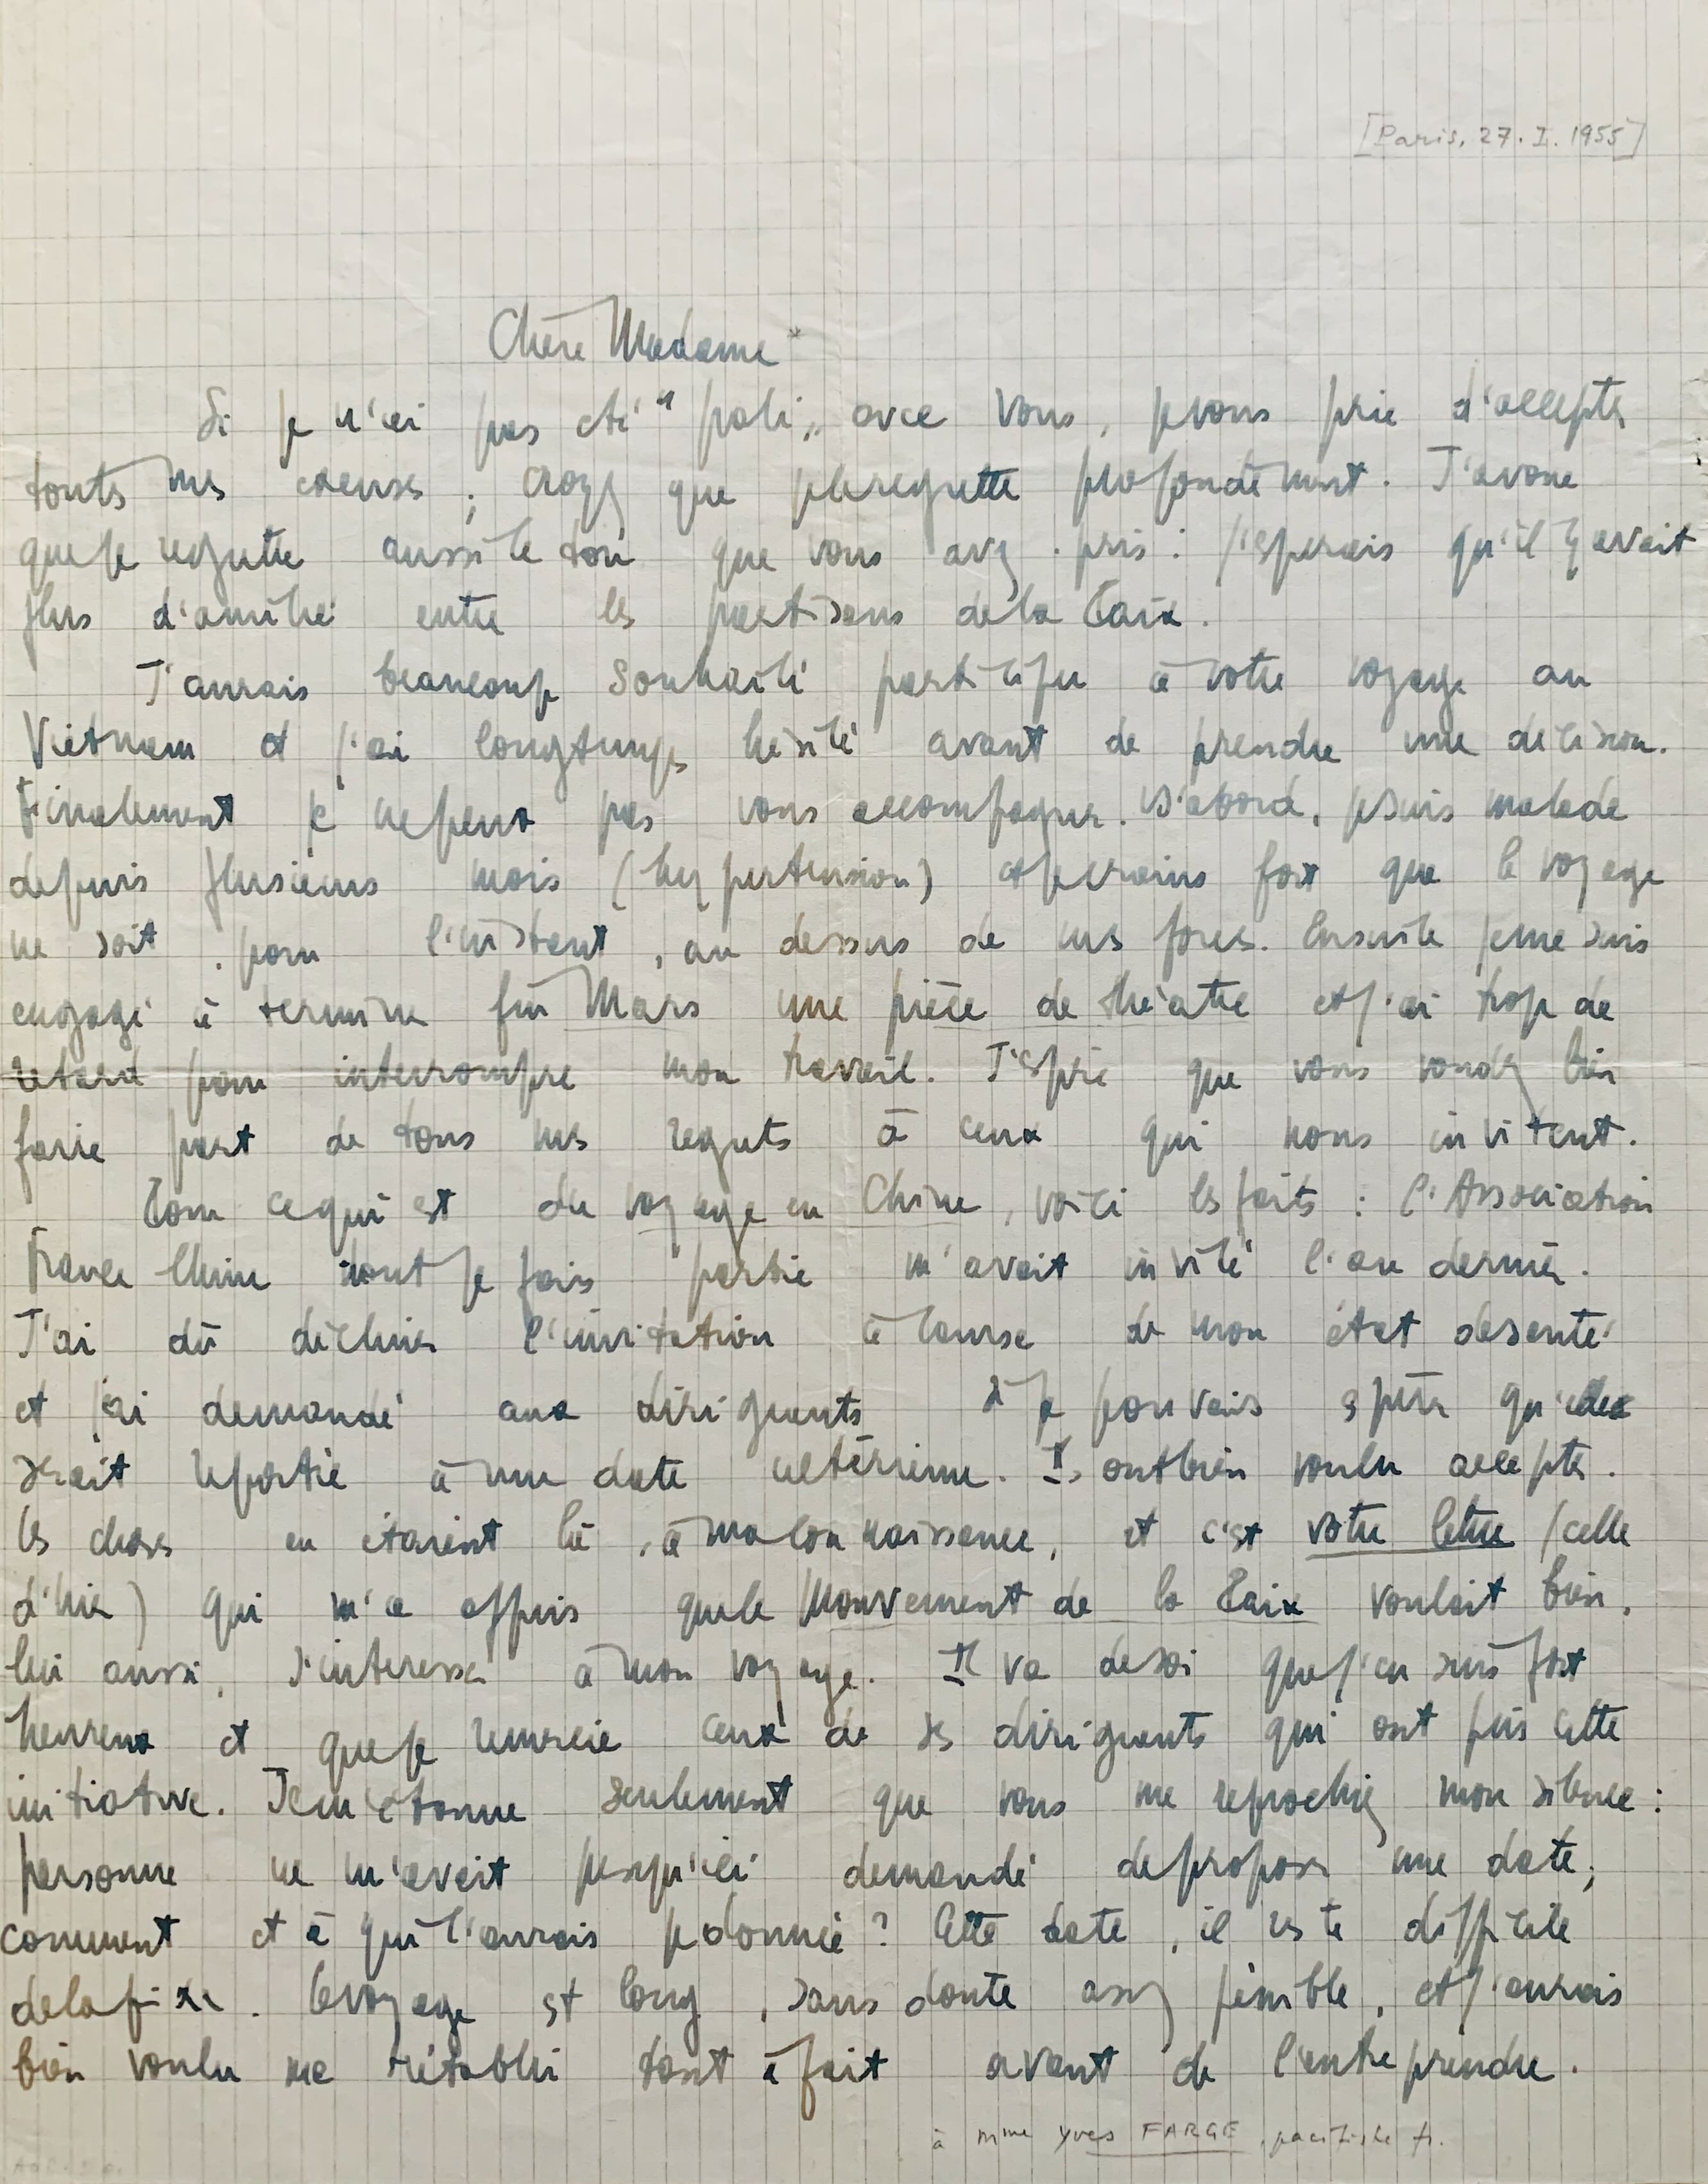 [Paris, 27. I. 1955]
Chère Madame *
Si je n'ai pas été "poli" avec vous, je vous prie d'accepter
toutes mes excuses ; croyez que je le regrette profondément. J'avoue
que je regrette aussi le ton que vous avez pris : j'espérais qu'il y avait
plus d'amitié entre les partisans de la Paix.
J'aurais beaucoup souhaité participer à votre voyage au
Vietnam et j'ai longtemps hésité avant de prendre une décision.
Finalement je ne peux pas vous accompagner. D'abord, je suis malade
depuis plusieurs mois (hypertension) et je crains fort que le voyage
ne soit, pour l'instant, au dessus de mes forces. Ensuite je me suis
engagé à terminer fin Mars une pièce de théâtre et j'ai trop de
retard pour interrompre mon travail. J'espère que vous voudrez bien
faire part de tous mes regrets à ceux qui nous invitent.
Pour ce qui est du voyage en Chine, voici les faits : l'Association
France Chine dont je fais partie m'avait invité l'an dernier.
J'ai dû décliner l'invitation à cause de mon état de santé
et j'ai demandé aux dirigeants si je pouvais espérer qu'elle
serait reportée à une date ultérieure. Ils ont bien voulu accepter.
Les choses en étaient là, à ma connaissance, et c'est votre lettre (celle
d'hier) qui m'a appris que le Mouvement de la Paix voulait bien,
lui aussi, s'intéresser à mon voyage. Il va de soi que j'en suis fort
heureux et que je remercie ceux de ses dirigeants qui ont pris cette
initiative. Je m'étonne seulement que vous me reprochiez mon silence :
personne ne m'avait jusqu'ici demandé de proposer une date ;
comment et à qui l'aurais je donnée ? Cette date, il reste difficile
de la fixer. Le voyage est long, sans doute assez pénible, et j'aurais
bien voulu me rétablir tout à fait avant de l'entreprendre.
à Mme Yves FARGE, pacifiste fr.